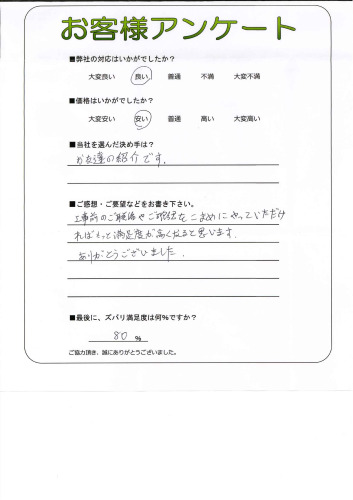 お客様アンケート
■弊社の対応はいかがでしたか？
大変良い 良い 普通 不満 大変不満
■価格はいかがでしたか？
大変安い 安い 普通 高い 大変高い
■当社を選んだ決め手は？
お友達の紹介です。
■ご感想・ご要望などをお書き下さい。
工事前のご連絡やご確認をこまめにやっていただけ
ればもっと満足度が高くなると思います。
ありがとうございました。
■最後に、ズバリ満足度は何%ですか？
80 %
ご協力頂き、誠にありがとうございました。